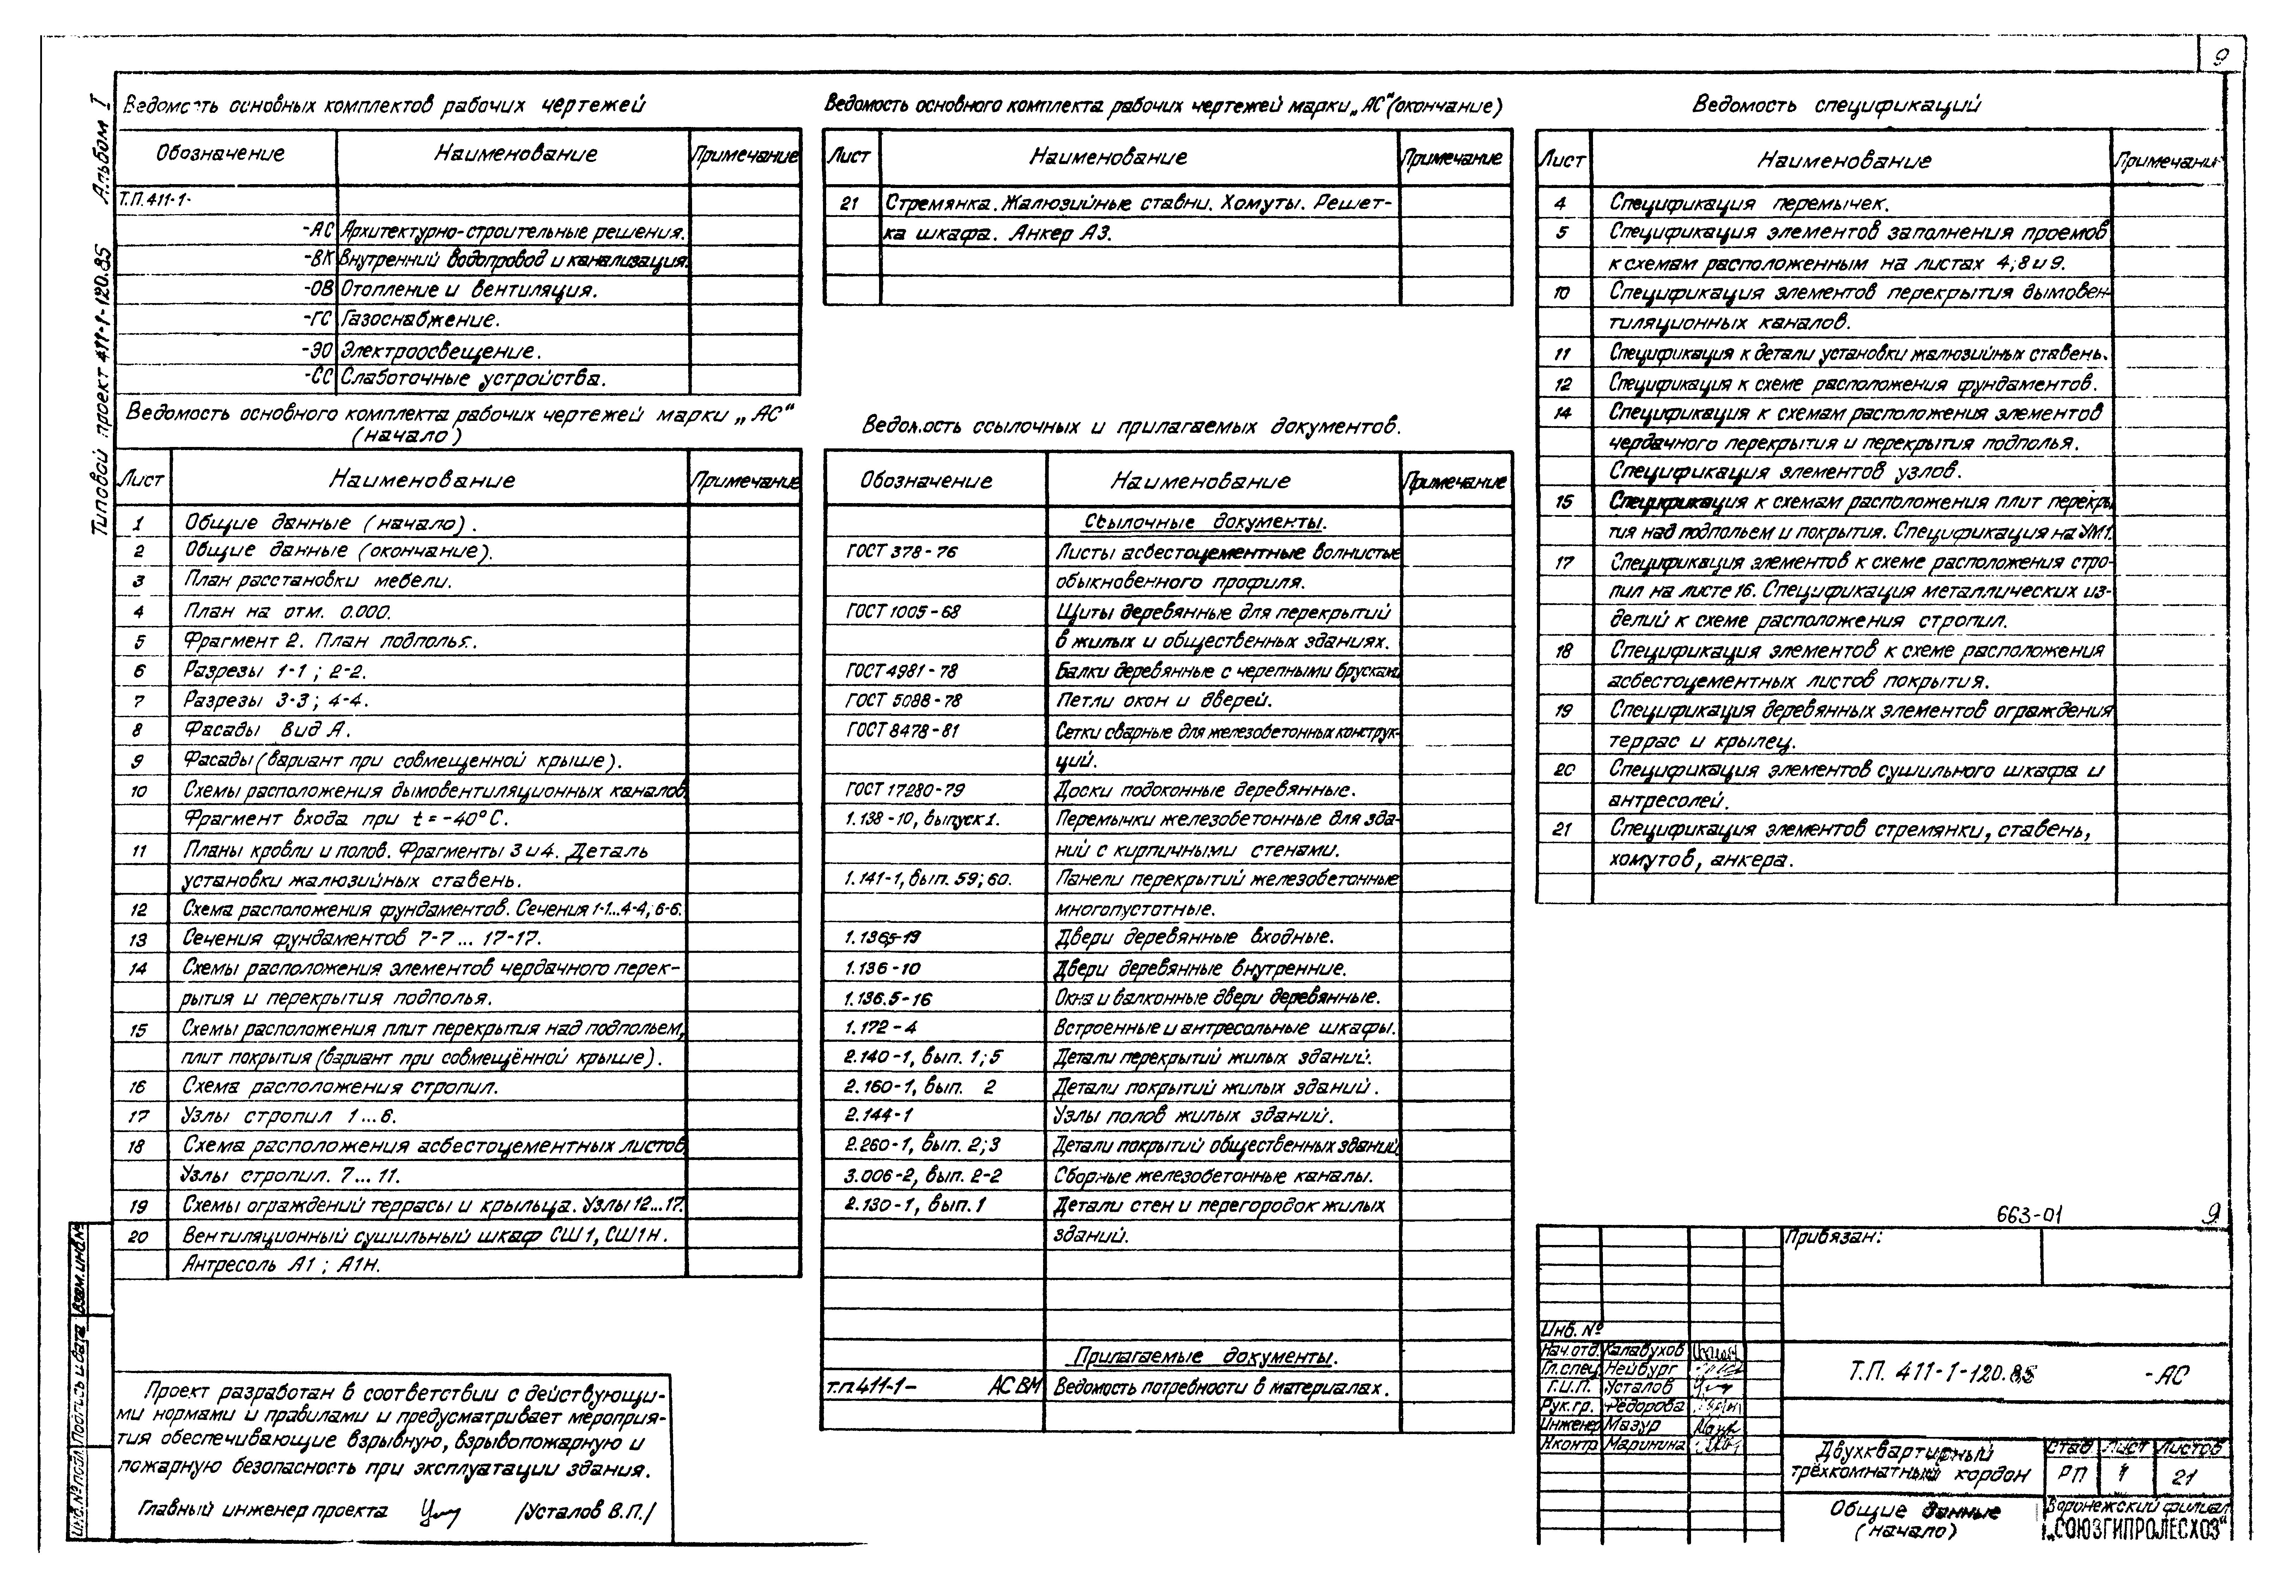 9
Альбом I
Типовой проект 411-1-120.85
Ведомость основных комплектов рабочих чертежей
Обозначение Наименование Примечание
Т.П. 411-1-
-АС Архитектурно-строительные решения.
-ВК Внутренний водопровод и канализация.
-ОВ Отопление и вентиляция.
-ГС Газоснабжение.
-ЭО Электроосвещение.
-СС Слаботочные устройства.
Ведомость основного комплекта рабочих чертежей марки „АС“
(начало)
Лист Наименование Примечание
1 Общие данные (начало).
2 Общие данные (окончание).
3 План расстановки мебели.
4 План на отм. 0.000.
5 Фрагмент 2. План подполья.
6 Разрезы 1-1; 2-2.
7 Разрезы 3-3; 4-4.
8 Фасады Вид А.
9 Фасады (вариант при совмещенной крыше).
10 Схемы расположения дымовентиляционных каналов.
Фрагмент входа при t=-40°С.
11 Планы кровли и полов. Фрагменты 3 и 4. Деталь
установки жалюзийных ставень.
12 Схема расположения фундаментов. Сечения 1-1...4-4; 6-6.
13 Сечения фундаментов 7-7... 17-17.
14 Схемы расположения элементов чердачного перек-
рытия и перекрытия подполья.
15 Схемы расположения плит перекрытия над подпольем,
плит покрытия (вариант при совмещённой крыше).
16 Схема расположения стропил.
17 Узлы стропил 1...6.
18 Схема расположения асбестоцементных листов
Узлы стропил. 7... 11.
19 Схемы ограждений террасы и крыльца. Узлы 12...17.
20 Вентиляционный сушильный шкаф СШ1, СШ1Н.
Антресоль А1; А1Н.
Проект разработан в соответствии с действующи-
ми нормами и правилами и предусматривает мероприя-
тия обеспечивающие взрывную, взрывопожарную и
пожарную безопасность при эксплуатации здания.
Главный инженер проекта /Усталов В.П./
Взам.инв.№
Подпись и дата
Инв.№подл.
Ведомость основного комплекта рабочих чертежей марки „АС“ (окончание)
Лист Наименование Примечание
21 Стремянка. Жалюзийные ставни. Хомуты. Решет-
ка шкафа. Анкер А3.
Ведомость ссылочных и прилагаемых документов.
Обозначение Наименование Примечание
Ссылочные документы.
ГОСТ 378-76 Листы асбестоцементные волнистые
обыкновенного профиля.
ГОСТ 1005-68 Щиты деревянные для перекрытий
в жилых и общественных зданиях.
ГОСТ 4981-78 Балки деревянные с черепными брусками
ГОСТ 5088-78 Петли окон и дверей.
ГОСТ 8478-81 Сетки сварные для железобетонных конструк-
ций.
ГОСТ 17280-79 Доски подоконные деревянные.
1.138-10, выпуск 1. Перемычки железобетонные для зда-
ний с кирпичными стенами.
1.141-1, вып. 59; 60. Панели перекрытий железобетонные
многопустотные.
1.136.5-19 Двери деревянные входные.
1.136-10 Двери деревянные внутренние.
1.136.5-16 Окна и балконные двери деревянные.
1.172-4 Встроенные и антресольные шкафы.
2.140-1, вып. 1; 5 Детали перекрытий жилых зданий.
2.160-1, вып. 2 Детали покрытий жилых зданий.
2.144-1 Узлы полов жилых зданий.
2.260-1, вып. 2; 3 Детали покрытий общественных зданий.
3.006-2, вып. 2-2 Сборные железобетонные каналы.
2.130-1, вып. 1 Детали стен и перегородок жилых
зданий.
Прилагаемые документы.
т.п. 411-1- АС ВМ Ведомость потребности в материалах.
Ведомость спецификаций
Лист Наименование Примечание
4 Спецификация перемычек.
5 Спецификация элементов заполнения проемов
к схемам расположенным на листах 4; 8 и 9.
10 Спецификация элементов перекрытия дымовен-
тиляционных каналов.
11 Спецификация к детали установки жалюзийных ставень.
12 Спецификация к схеме расположения фундаментов.
14 Спецификация к схемам расположения элементов
чердачного перекрытия и перекрытия подполья.
Спецификация элементов узлов.
15 Спецификация к схемам расположения плит перекры
тия над подпольем и покрытия. Спецификация на УМ1.
17 Спецификация элементов к схеме расположения стро-
пил на листе 16. Спецификация металлических из-
делий к схеме расположения стропил.
18 Спецификация элементов к схеме расположения
асбестоцементных листов покрытия.
19 Спецификация деревянных элементов ограждения
террас и крылец.
20 Спецификация элементов сушильного шкафа и
антресолей.
21 Спецификация элементов стремянки, ставень,
хомутов, анкера.
663-01 9
Привязан:
Инв. №
Нач.отд. Калабухов
Гл.спец. Нейбург
Г.И.П. Усталов
Рук.гр. Федорова
Инженер Мазур
Н.контр. Маринина
Т.П. 411-1-120.85 -АС
Двухквартирный
трёхкомнатный кордон
Стад Лист Листов
РП 1 21
Общие данные
(начало)
Воронежский филиал
„СОЮЗГИПРОЛЕСХОЗ“